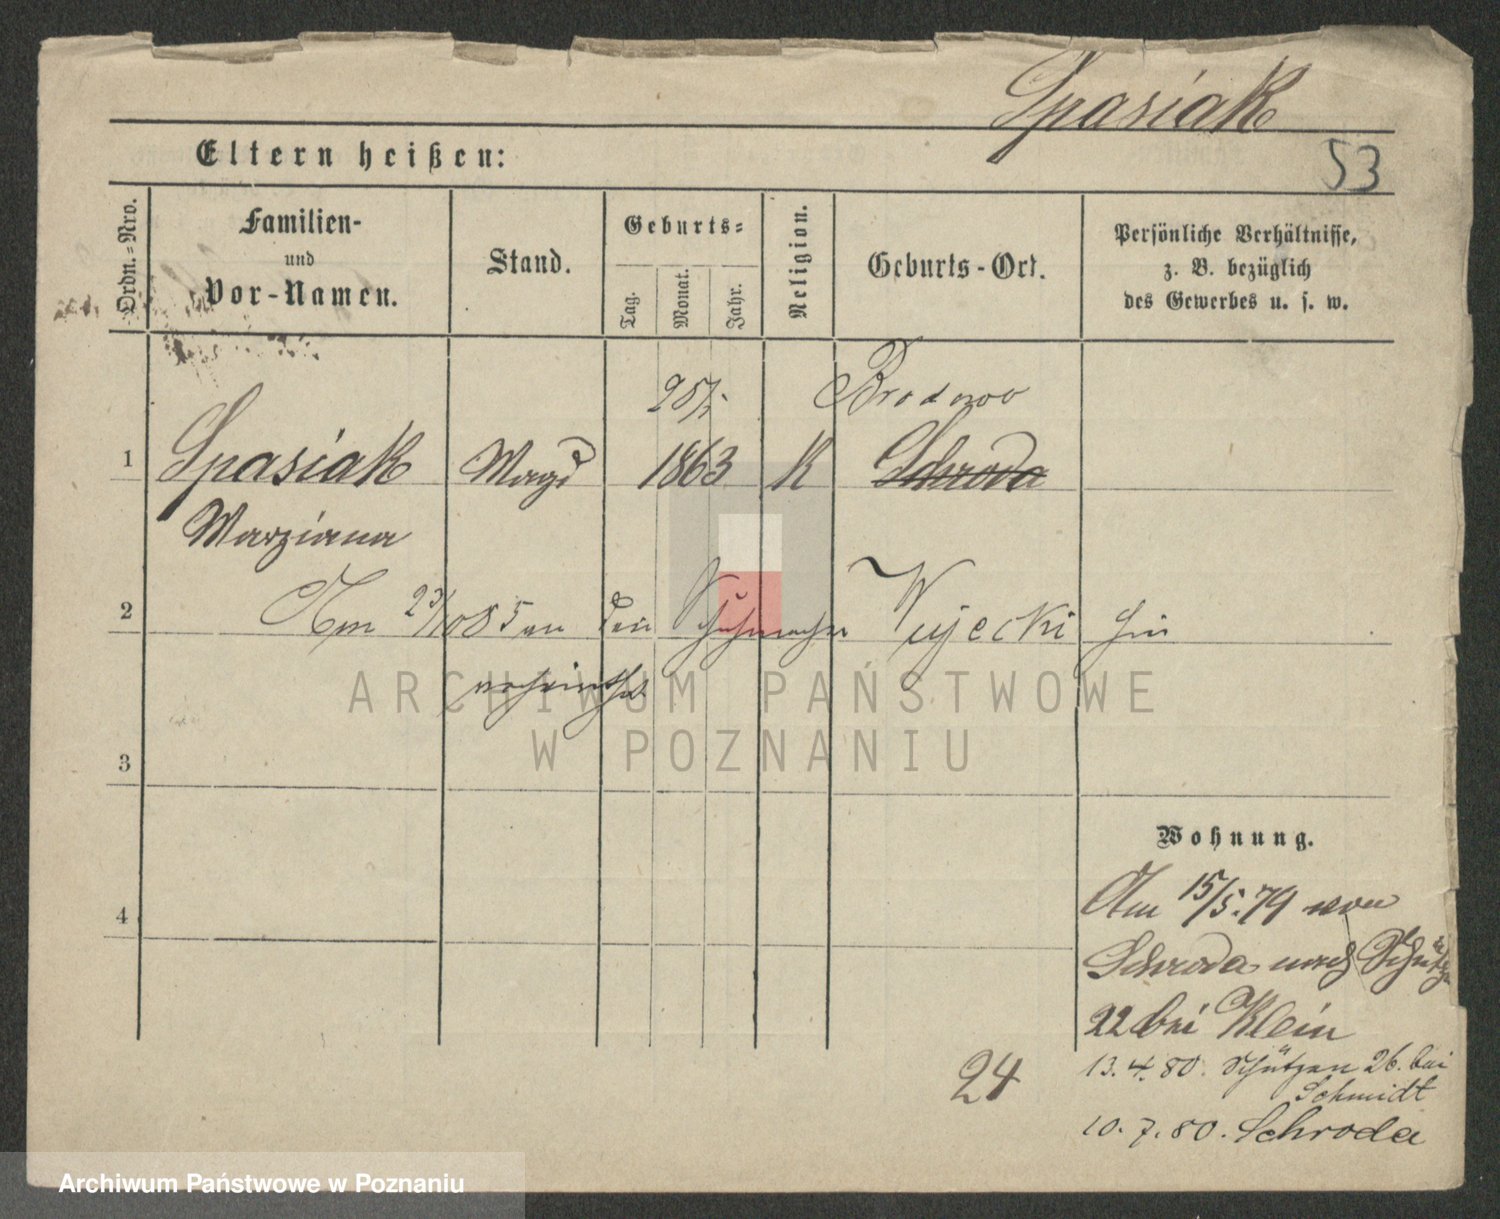 Spasiak
53
Eltern heißen:
Ordn.-Nro.
Familien-
und
Vor-Namen.
Stand.
Geburts-
Tag.
Monat.
Jahr.
Religion.
Geburts-Ort.
Persönliche Verhältnisse,
z. B. bezüglich
des Gewerbes u. s. w.
25/
Brodowo
1 Spasiak Magd 1863 K Schroda
Marziana
2 Am 85 an den Schuhmacher Wujecki hier
verheirathet
3
4
Wohnung.
Am 15/5.79 von
Schroda nach Schützen
22 bei Klein
13.4.80. Schützen 26. bei
Schmidt
10.7.80. Schroda
24
ARCHIWUM PAŃSTWOWE
W POZNANIU
Archiwum Państwowe w Poznaniu